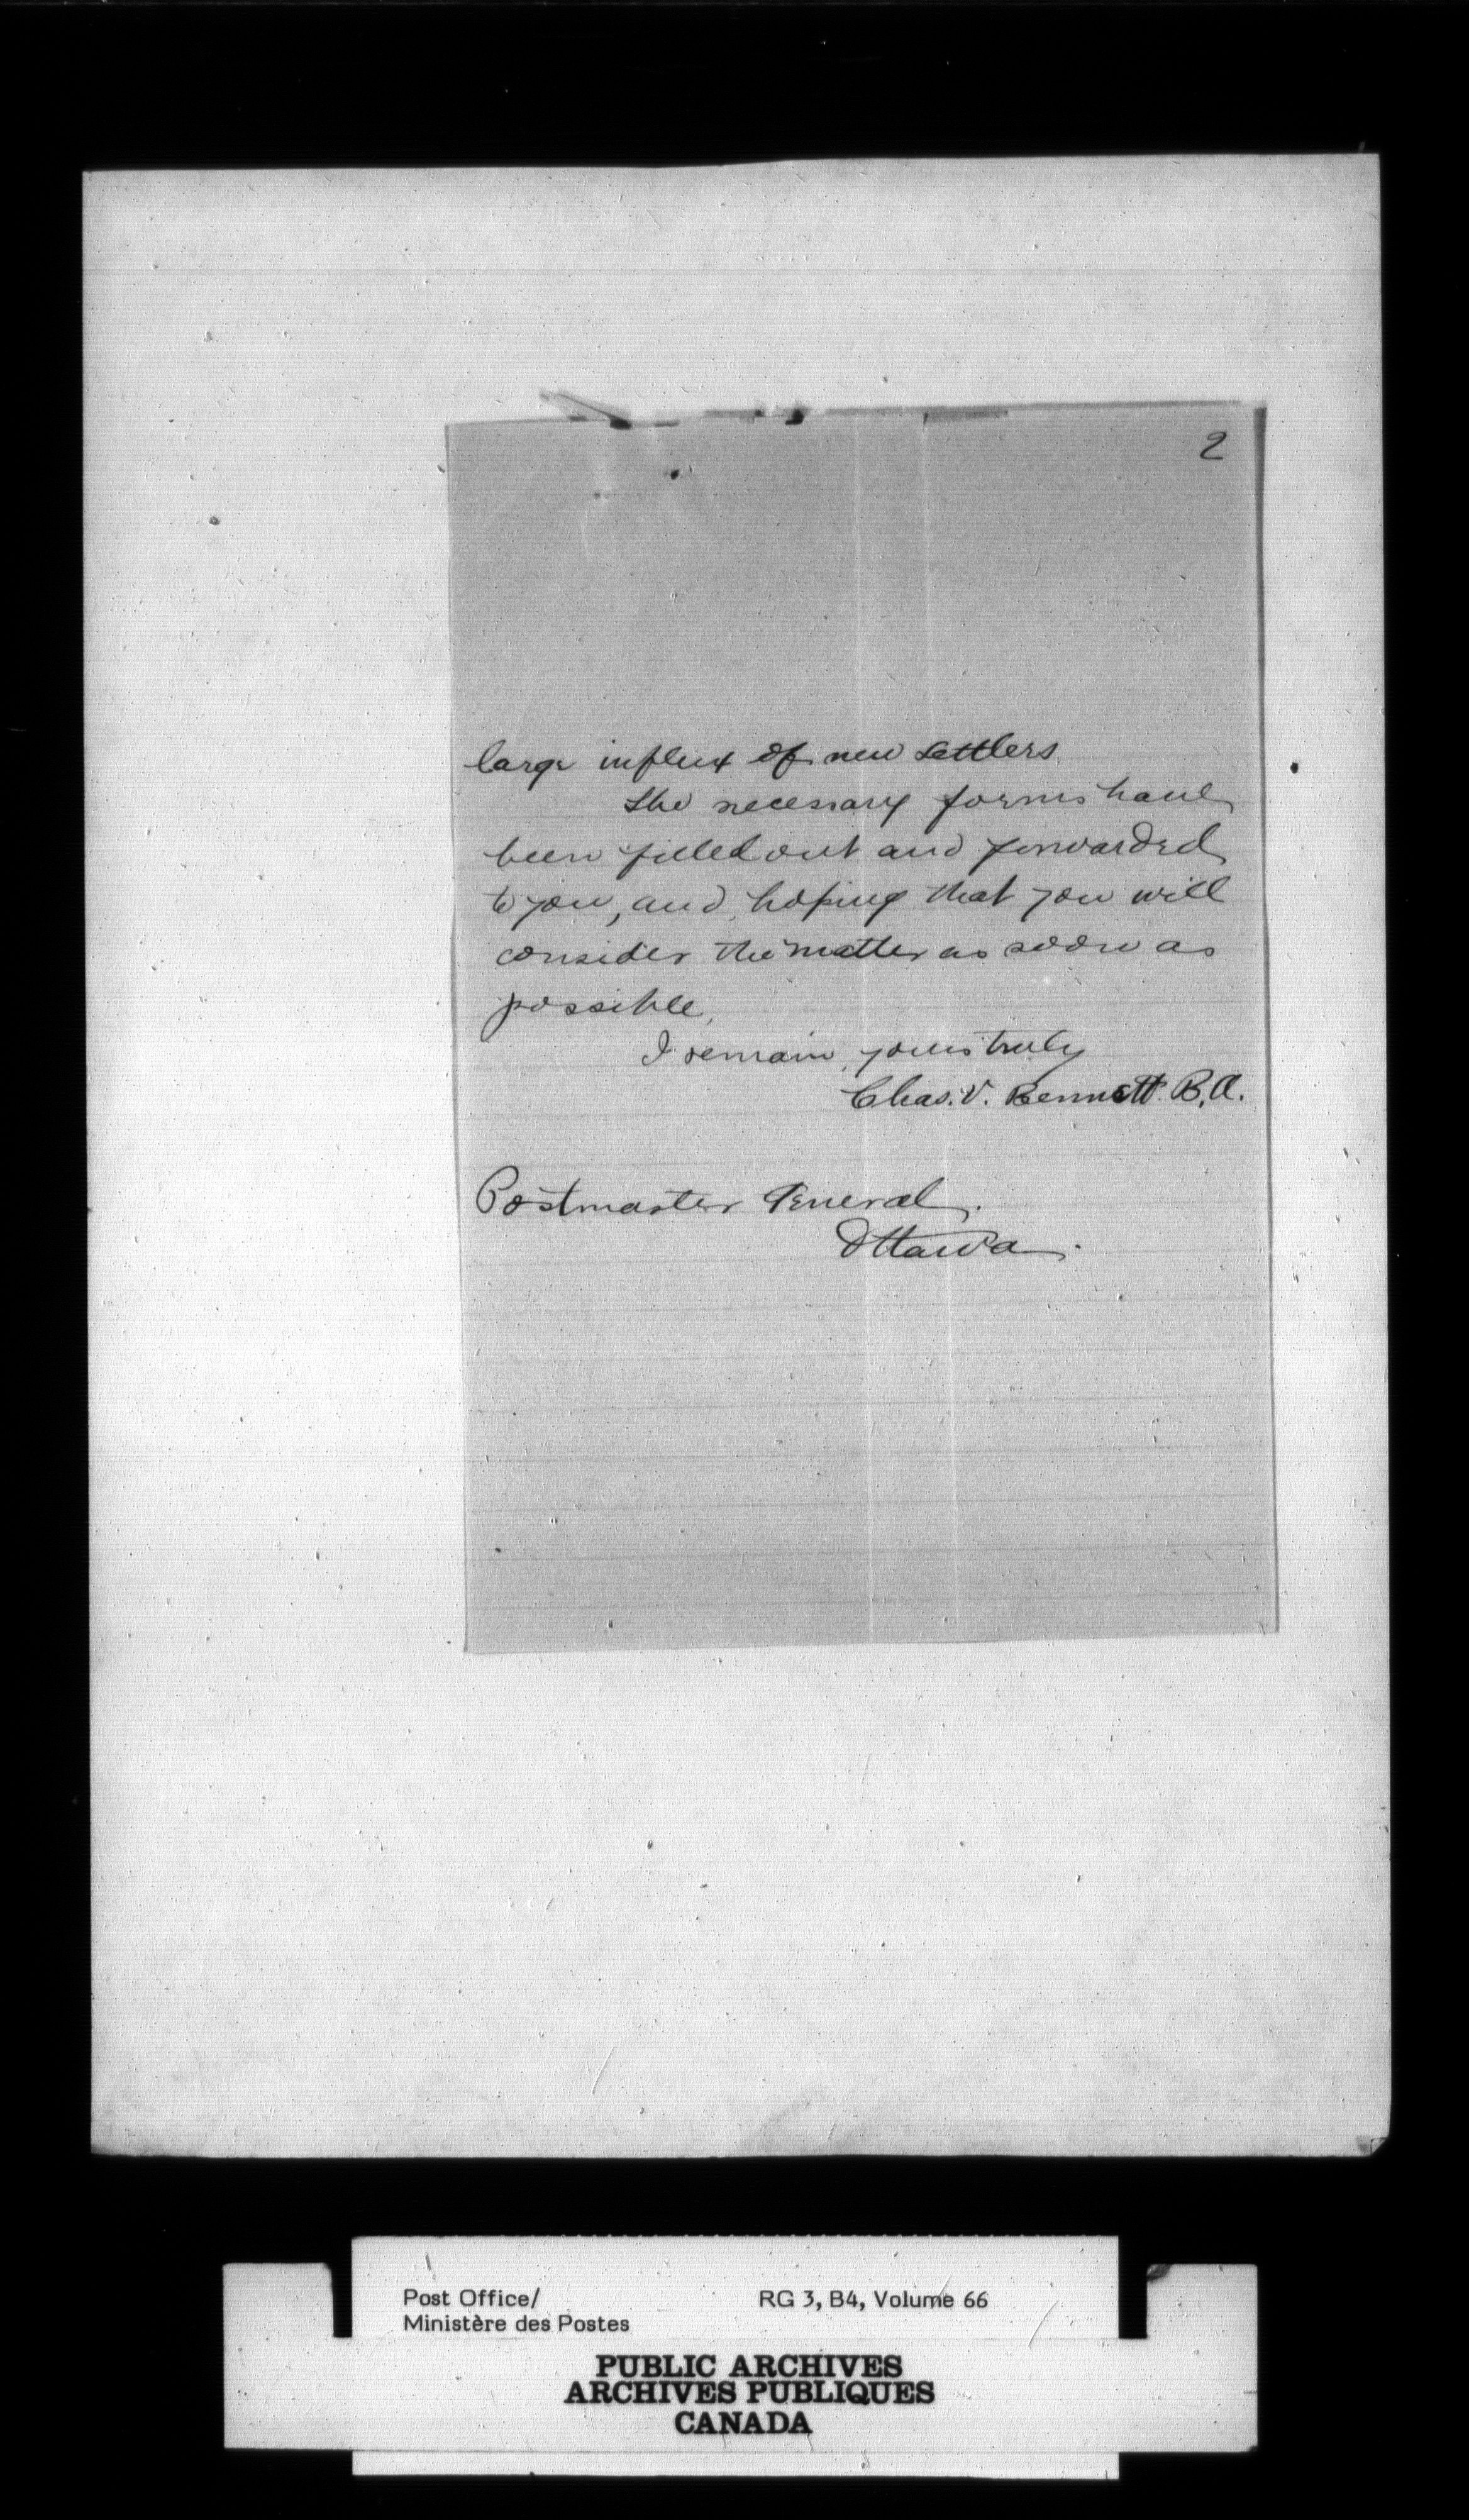 2
large influx of new settlers
The necessary forms have
been filled out and forwarded
to you, and hoping that you will
consider the matter as soon as
possible,
I remain, yours truly
Chas. V. Bennett B.A.
Postmaster General.
Ottawa.
Post Office/ RG 3, B4, Volume 66
Ministère des Postes
PUBLIC ARCHIVES
ARCHIVES PUBLIQUES
CANADA